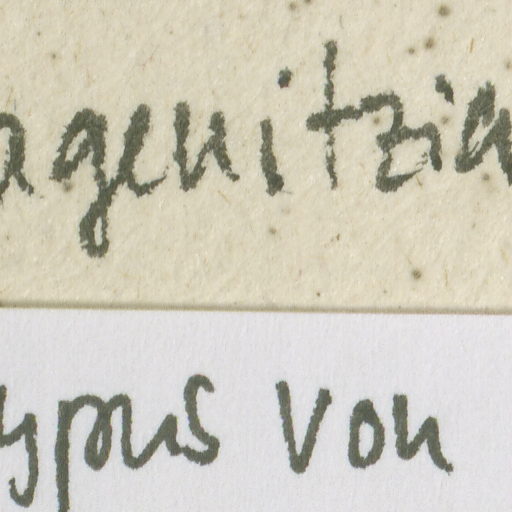 agenitzia
ypus von